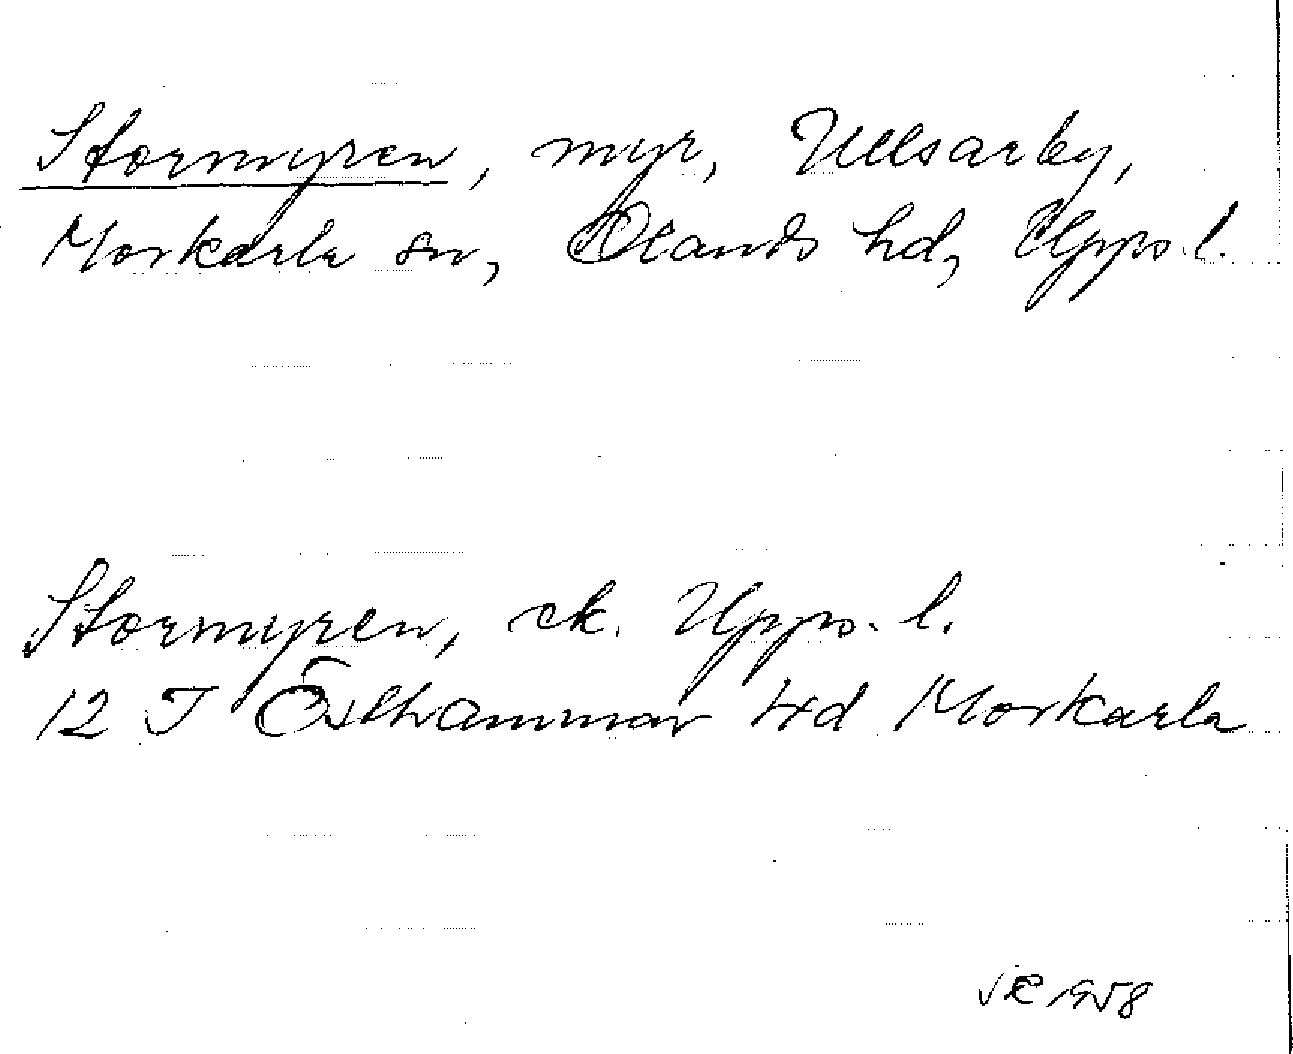 Stormyren, myr, Ullsarby,
Morkarla sn, Olands hd, Upps. l.
Stormyren, ek. Upps. l.
12 I Östhammar 4d Morkarla
1958